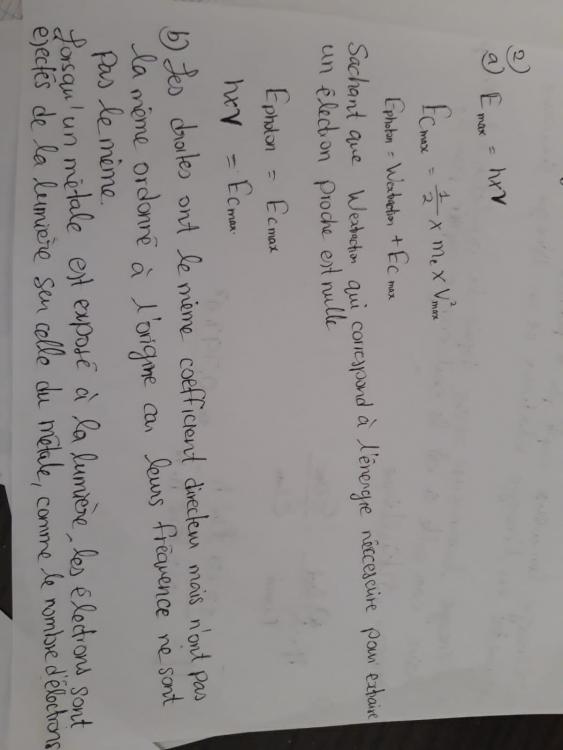 2)
a) Emax = h×ν
Ecmax = 1/2 × me × V²max
Ephoton = Wextraction + Ecmax
Sachant que Wextraction qui correspond à l'énergie néccessaire pour extraire
un électron proche est nulle
Ephoton = Ecmax
h×ν = Ecmax.
b) Les droites ont le même coefficient directeur mais n'ont pas
la même ordonné à l'origine car leurs fréquence ne sont
pas le même.
Lorsqu'un métale est exposé à la lumière, les électrons sont
ejectés de la lumière sur celle du métale, comme le nombre d'électrons